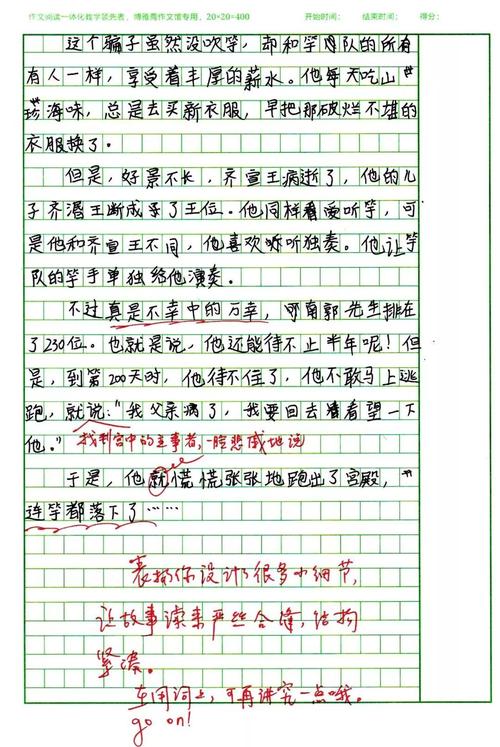 作文阅读一体化教学领先者，博雅斋作文馆专用，20×20=400 开始时间： 结束时间： 得分：
这个骗子虽然没吹竽，却和竽队的所有
有人一样，享受着丰厚的薪水。他每天吃山
珍海味，总是去买新衣服，早把那破烂不堪的
衣服换了。
但是，好景不长，齐宣王病逝了，他的儿
子齐湣王继承了王位。他同样爱听竽，可
是他和齐宣王不同，他喜欢听独奏。他让竽
队的竽手单独给他演奏。
不过真是不幸中的万幸，南郭先生排在
了230位。也就是说，他还能待不止半年呢！但
是，到第200天时，他待不住了，他不敢马上逃
跑，就说："我父亲病了，我要回去看看望一下
他。"
找到宫中的主事者，一脸悲戚地说
于是，他就慌慌张张地跑出了宫殿，
连竽都落下了……
表扬你设计了很多小细节，
让故事读来严丝合缝，结构
紧凑。
在用词上，可再讲究一点哦。
go on!